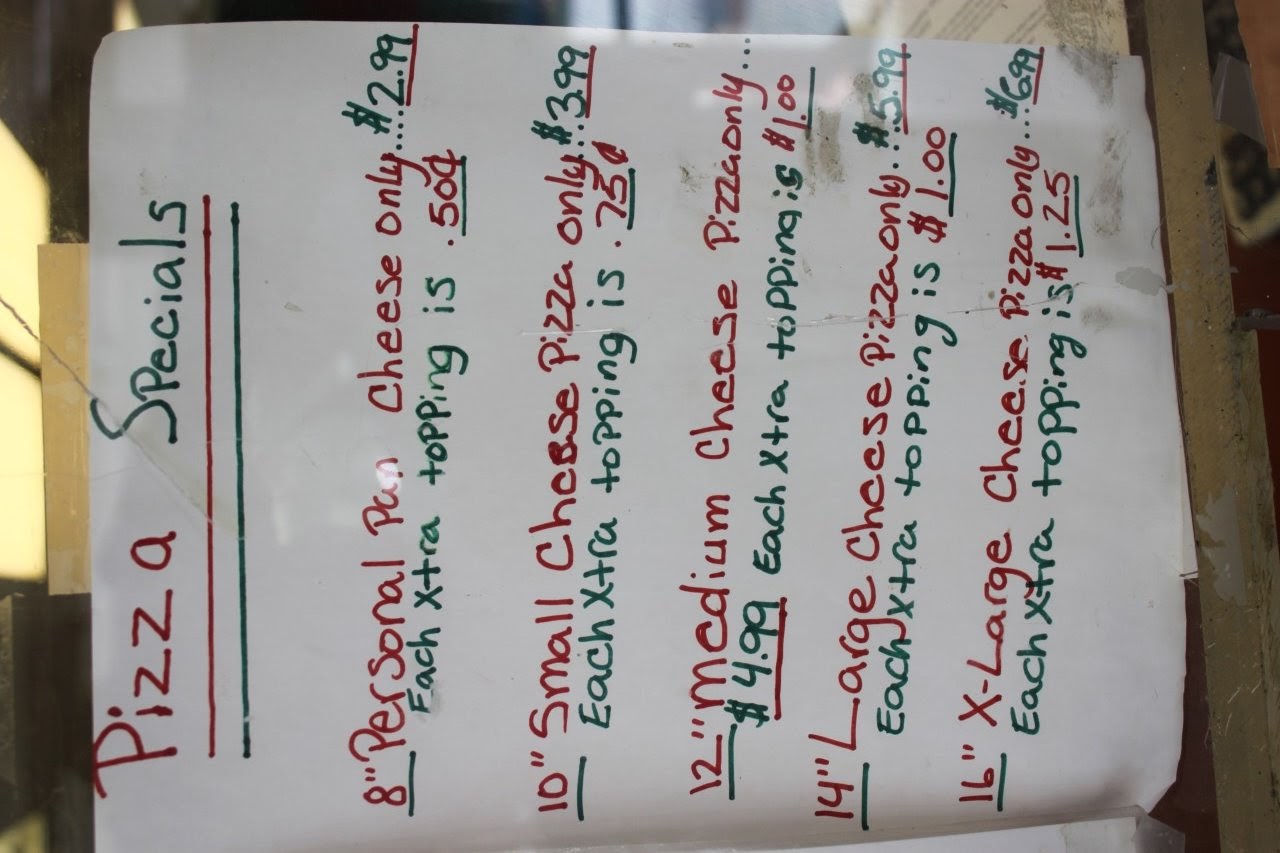 Pizza Specials
8" Personal Pan Cheese only....$2.99
Each Xtra topping is .50¢
10" Small Cheese Pizza only..$3.99
Each Xtra topping is .75¢
12" Medium Cheese Pizza only...
$4.99 Each Xtra topping is $1.00
14" Large Cheese Pizza only...$5.99
Each Xtra topping is $1.00
16" X-Large Cheese Pizza only...$6.99
Each Xtra topping is $1.25